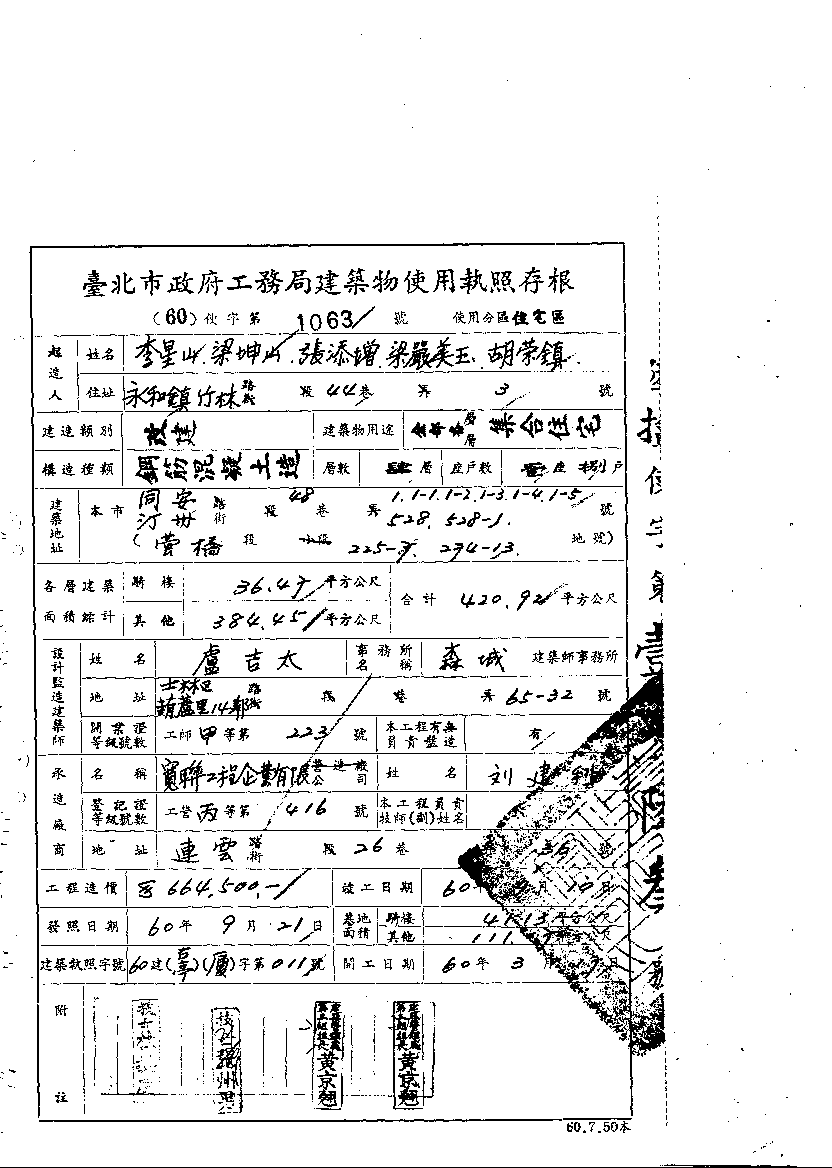 臺北市政府工務局建築物使用執照存根
(60)使字第 1063 號 使用分區住宅區
起造人 姓名 李星山.梁坤山.張添增.梁嚴美玉.胡荣鎮
住址 永和鎮竹林路街 段44巷 弄 3 號
建造類別 改建 建築物用途 集合住宅
構造種類 鋼筋混凝土造 層數 層 座戶數 座 戶
建築地址 本市 同安 汀州 路街 段 48 巷 弄 1.1-1.1-2.1-3.1-4.1-5 528.528-1. 號
(營橋 段 小段 274-13. 地號)
各層建築面積總計 騎樓 36.47 平方公尺 合計 420.92 平方公尺
其他 384.45 平方公尺
設計監造建築師 姓名 盧吉太 事務所名稱 森城 建築師事務所
地址 士林 葫蘆里14鄰 路街 段 巷 弄 65-32 號
開業證等級號數 工師甲等第 223 號 本工程有無負責監造 有
承造廠商 名稱 寶聯工程企業有限 營造廠公司 姓名 刘建
登記證等級號數 工營丙等第 416 號 本工程負責技師(副)姓名
地址 連雲 路街 段 26 巷 36 號
工程造價 664,500.- 竣工日期 60年 9月 10日
發照日期 60年 9月 21日 基地面積 騎樓 41.13 平方公尺
其他 111. 平方公尺
建築執照字號 60建( )( )字第011號 開工日期 60年 3月 日
附註
黃京翹
黃京翹
60.7.50本
使字第